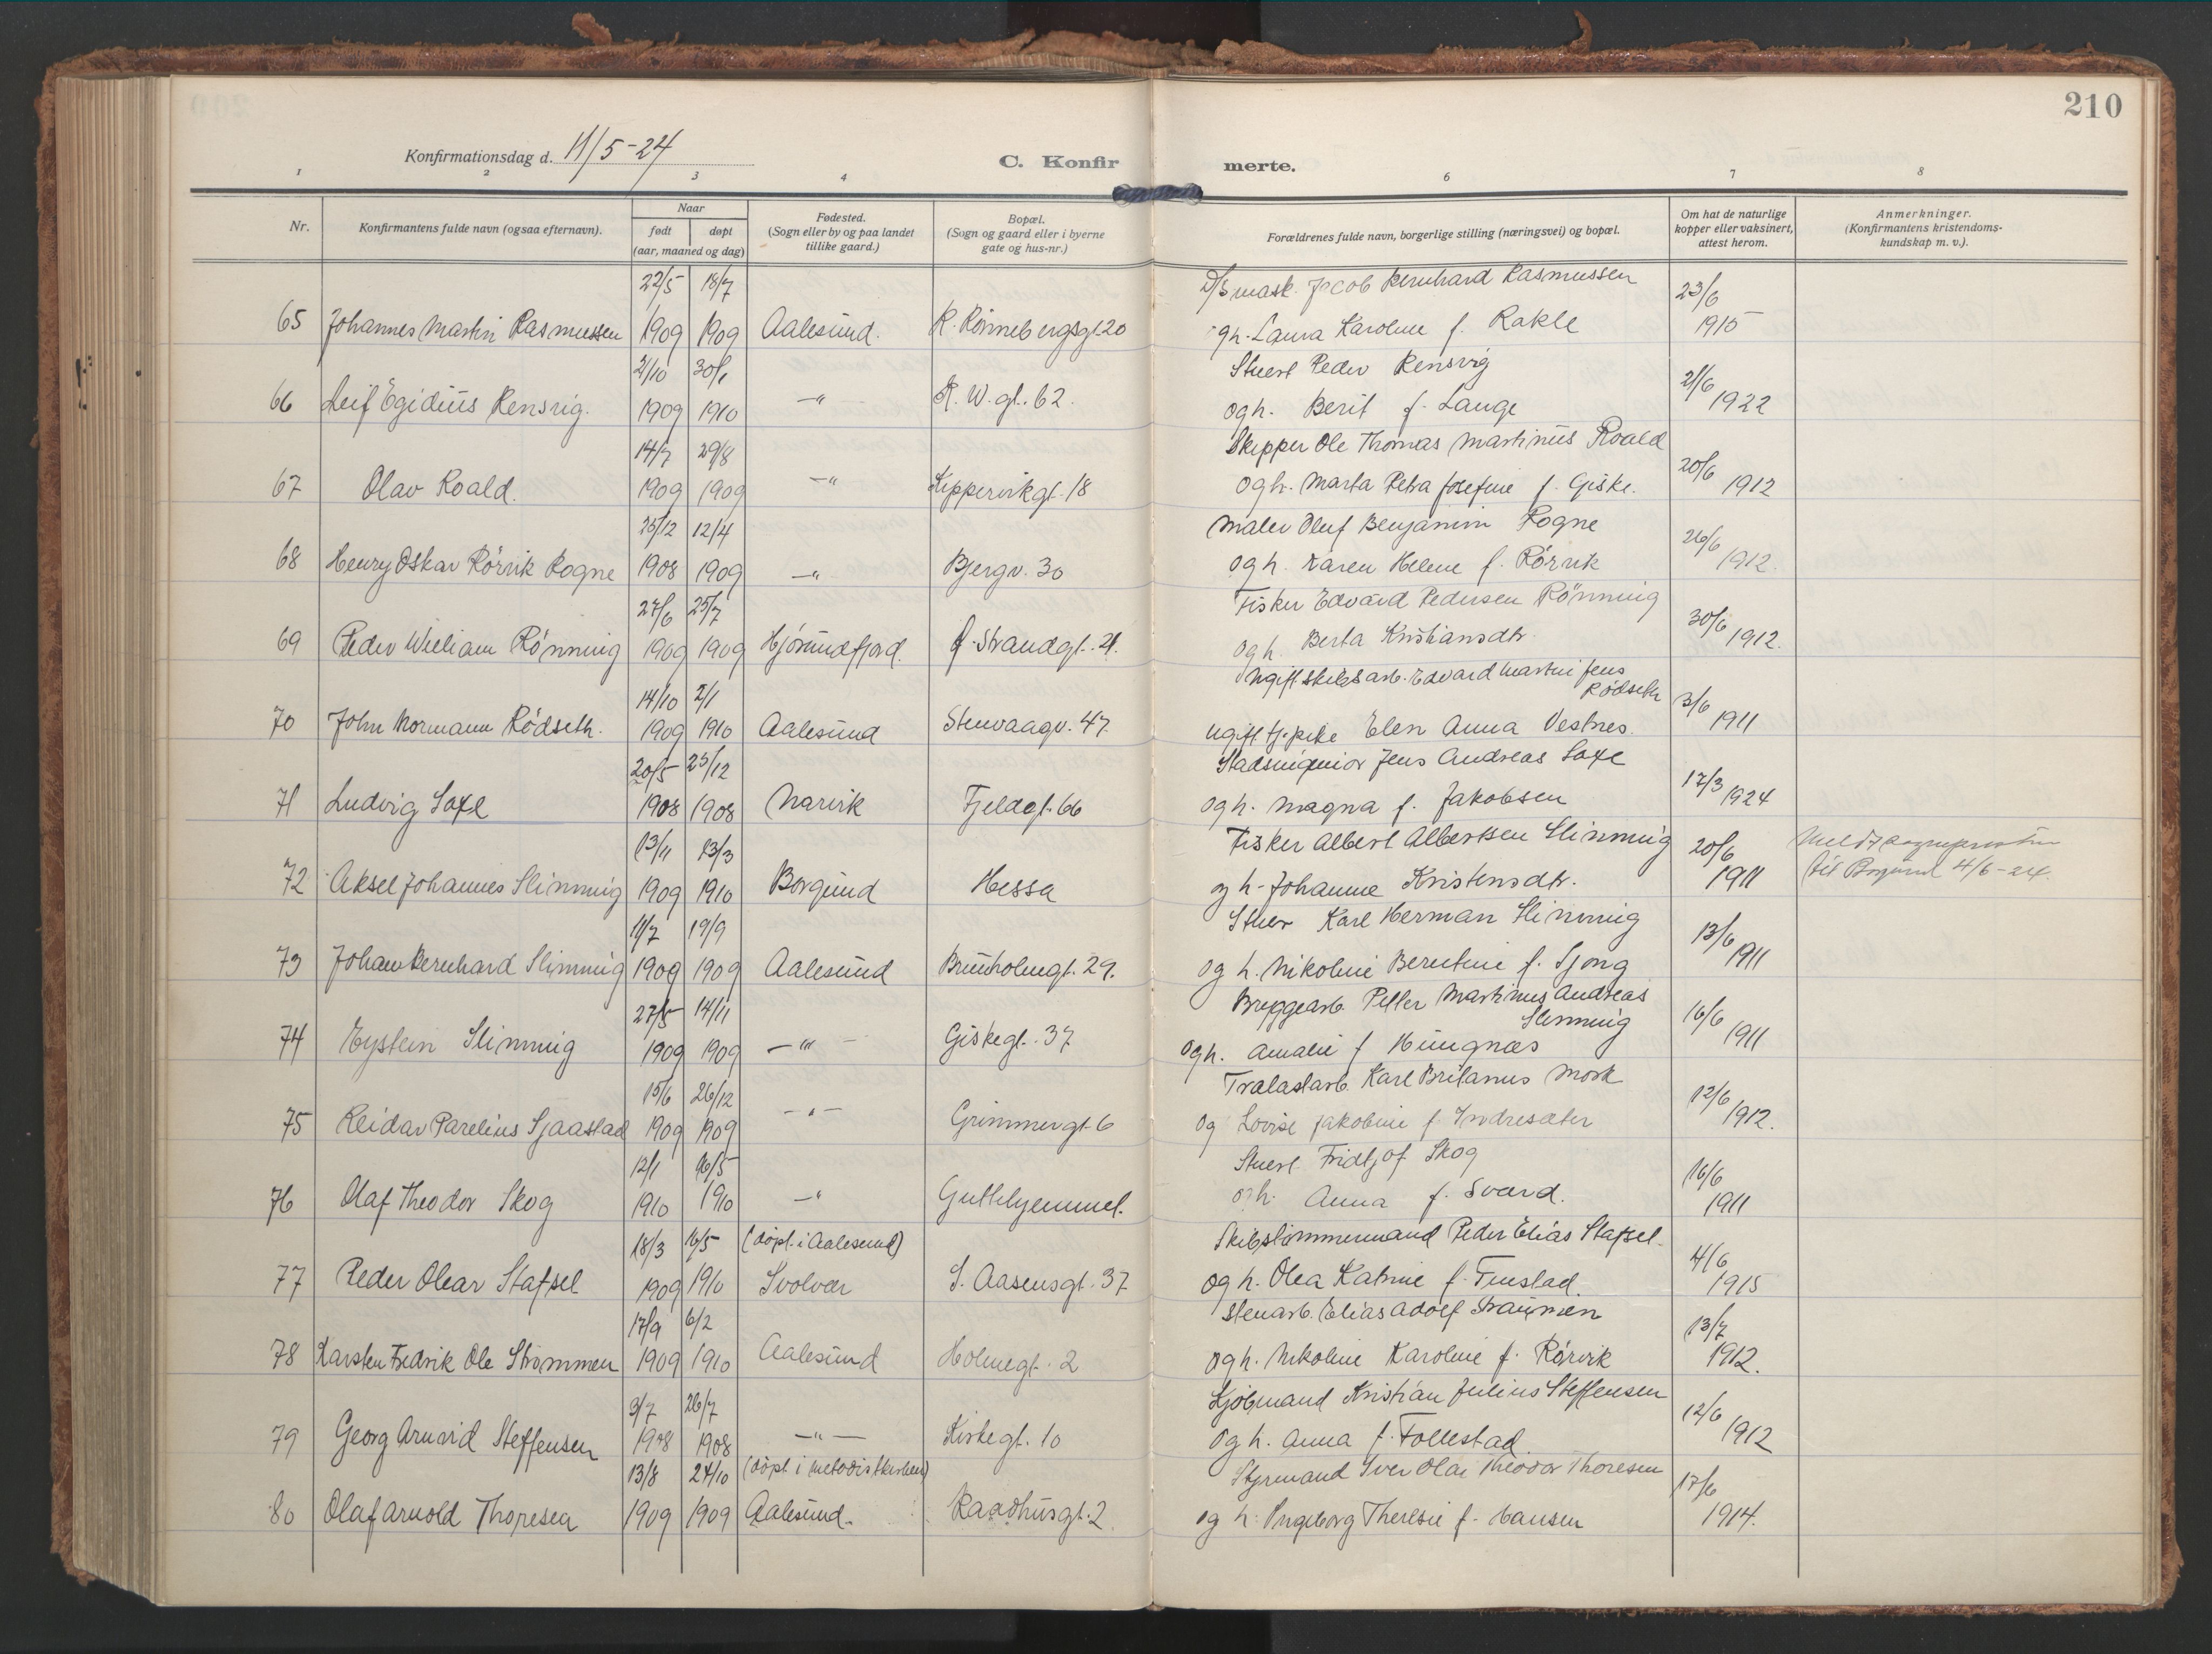 210
Konfirmationsdag d. 11/5-24
C. Konfir
merte.
1 2 3 4 6 7 8
Nr.
Konfirmantens fulde navn (ogsaa efternavn).
Naar
født døpt
(aar, maaned og dag)
Fødested.
(Sogn eller by og paa landet
tillike gaard.)
Bopæl.
(Sogn og gaard eller i byerne
gate og hus-nr.)
Forældrenes fulde navn, borgerlige stilling (næringsvei) og bopæl.
Om hat de naturlige
kopper eller vaksinert,
attest herom.
Anmerkninger.
(Konfirmantens kristendoms-
kundskap m. v.).
22/5 18/7 D/S mask. Jacob Bernhard Rasmussen 23/6
65 Johannes Martin Rasmussen 1909 1909 Aalesund. R. Rønnebergsgt. 20 og h. Laura Karoline f. Rakle 1915
2/10 30/1 Stuert Peder Rensvig 21/6
66 Leif Egidius Rensvig. 1909 1910 -"- K. W. gt. 62. og h. Berit f. Lange 1922
14/7 29/8 Skipper Ole Thomas Martinus Roald 20/6
67 Olav Roald. 1909 1909 -"- Kippervikgt. 18 og h. Marta Petra Josefine f. Giske. 1912
25/12 12/4 Maler Oluf Benjamin Rogne 26/6
68 Henry Oskar Rørvik Rogne 1908 1909 -"- Bjergv. 30 og h. Karen Helene f. Rørvik 1912.
27/6 25/7 Fisker Edvard Pedersen Rønning 30/6
69 Peder William Rønning 1909 1909 Hjørundfjord. f. Strandgt. 21. og h. Berta Kristiansdtr. 1912.
14/10 2/1 Ugift skibsarb. Edvard Martin Jens Rødseth 3/6
70 John Normann Rødseth. 1909 1910 Aalesund Stenvaagv. 47. ugift tj. pike Elen Anna Vestnes. 1911
20/5 23/12 Stadsingeniør Jens Andreas Saxe 17/3
71 Ludvig Saxe 1908 1908 Narvik Fjeldgt. 66 og h. Magna f. Jakobsen 1924
13/11 13/3 Fisker Albert Albertsen Slinning 20/6 Meldt sognepresten
72 Aksel Johannes Slinning 1909 1910 Borgund Hessa og h. Johanne Kristensdtr. 1911 til Borgund 4/6-24.
11/7 19/9 Karl Herman Slinning 13/6
73 Johan Bernhard Slinning 1909 1909 Aalesund Brunholmgt. 29. og h. Nikoline Berntine f. Sjong 1911
27/5 14/11 Bryggearb. Petter Martinus Andreas Slinning 16/6
74 Eystein Slinning 1909 1909 -"- Giskegt. 37 og h. Amalie f. Hungnes 1911
15/6 26/12 Trælastarb. Karl Britanus Mork 12/6
75 Reidar Parelius Sjaastad 1909 1909 -"- Grimmergt 6 og Lovise Jakobine f. Indresæter 1912.
12/1 16/5 Stuert Fridtjof Skog 16/6
76 Olaf Theodor Skog 1910 1910 -"- Guttehjemmet. og h. Anna f. Sværd. 1911
18/3 16/5 (døpt i Aalesund) Skibstømmermand Peder Elias Stafsel. 4/6
77 Peder Olear Stafsel 1909 1910 Svolvær I. Aasensgt. 37 og h. Olea Katrine f. Finstad. 1915
17/9 6/2 Stenarb. Elias Adolf Straumen 13/7
78 Karsten Fredrik Ole Strømmen 1909 1910 Aalesund Holmegt. 2 og h. Nikoline Karoline f. Rørvik 1912.
3/7 26/7 Kjøbmand Kristian Julius Steffensen 12/6
79 Georg Arnvid Steffensen 1908 1908 -"- Kirkegt. 10 og h. Anna f. Follestad. 1912
13/8 24/10 (døpt i metodistkirken) Styrmand Iver Olai Theodor Thoresen 17/6
80 Olaf Arnold Thoresen 1909 1909 Aalesund. Raadhusgt. 2 og h. Ingeborg Theresie f. Hansen 1914.